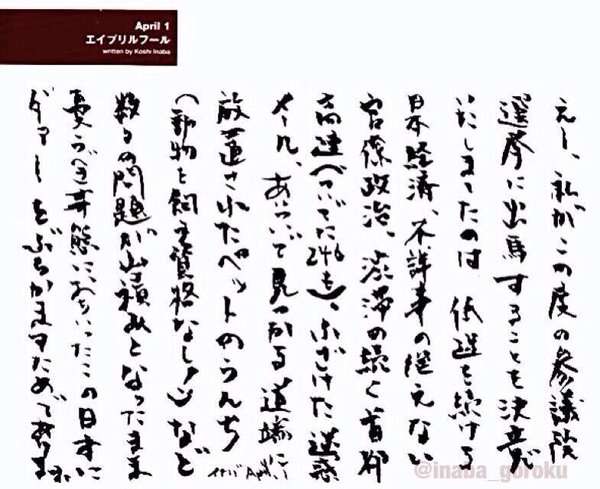 April 1
エイプリルフール
written by Koshi Inaba
えー、私がこの度の参議院
選挙に出馬することを決意
いたしましたのは 低迷を続ける
日本経済、不祥事の絶えない
官僚政治、渋滞の続く首都
高速(ついでに246も)、ふざけた迷惑
メール、あいついで見つかる道端に
放置されたペットのうんち
(動物を飼う資格なし!)など
数々の問題が山積みとなったまま
憂うべき事態におちいったこの日本に
ダァーーをぶちかますためであります
@inaba_goroku